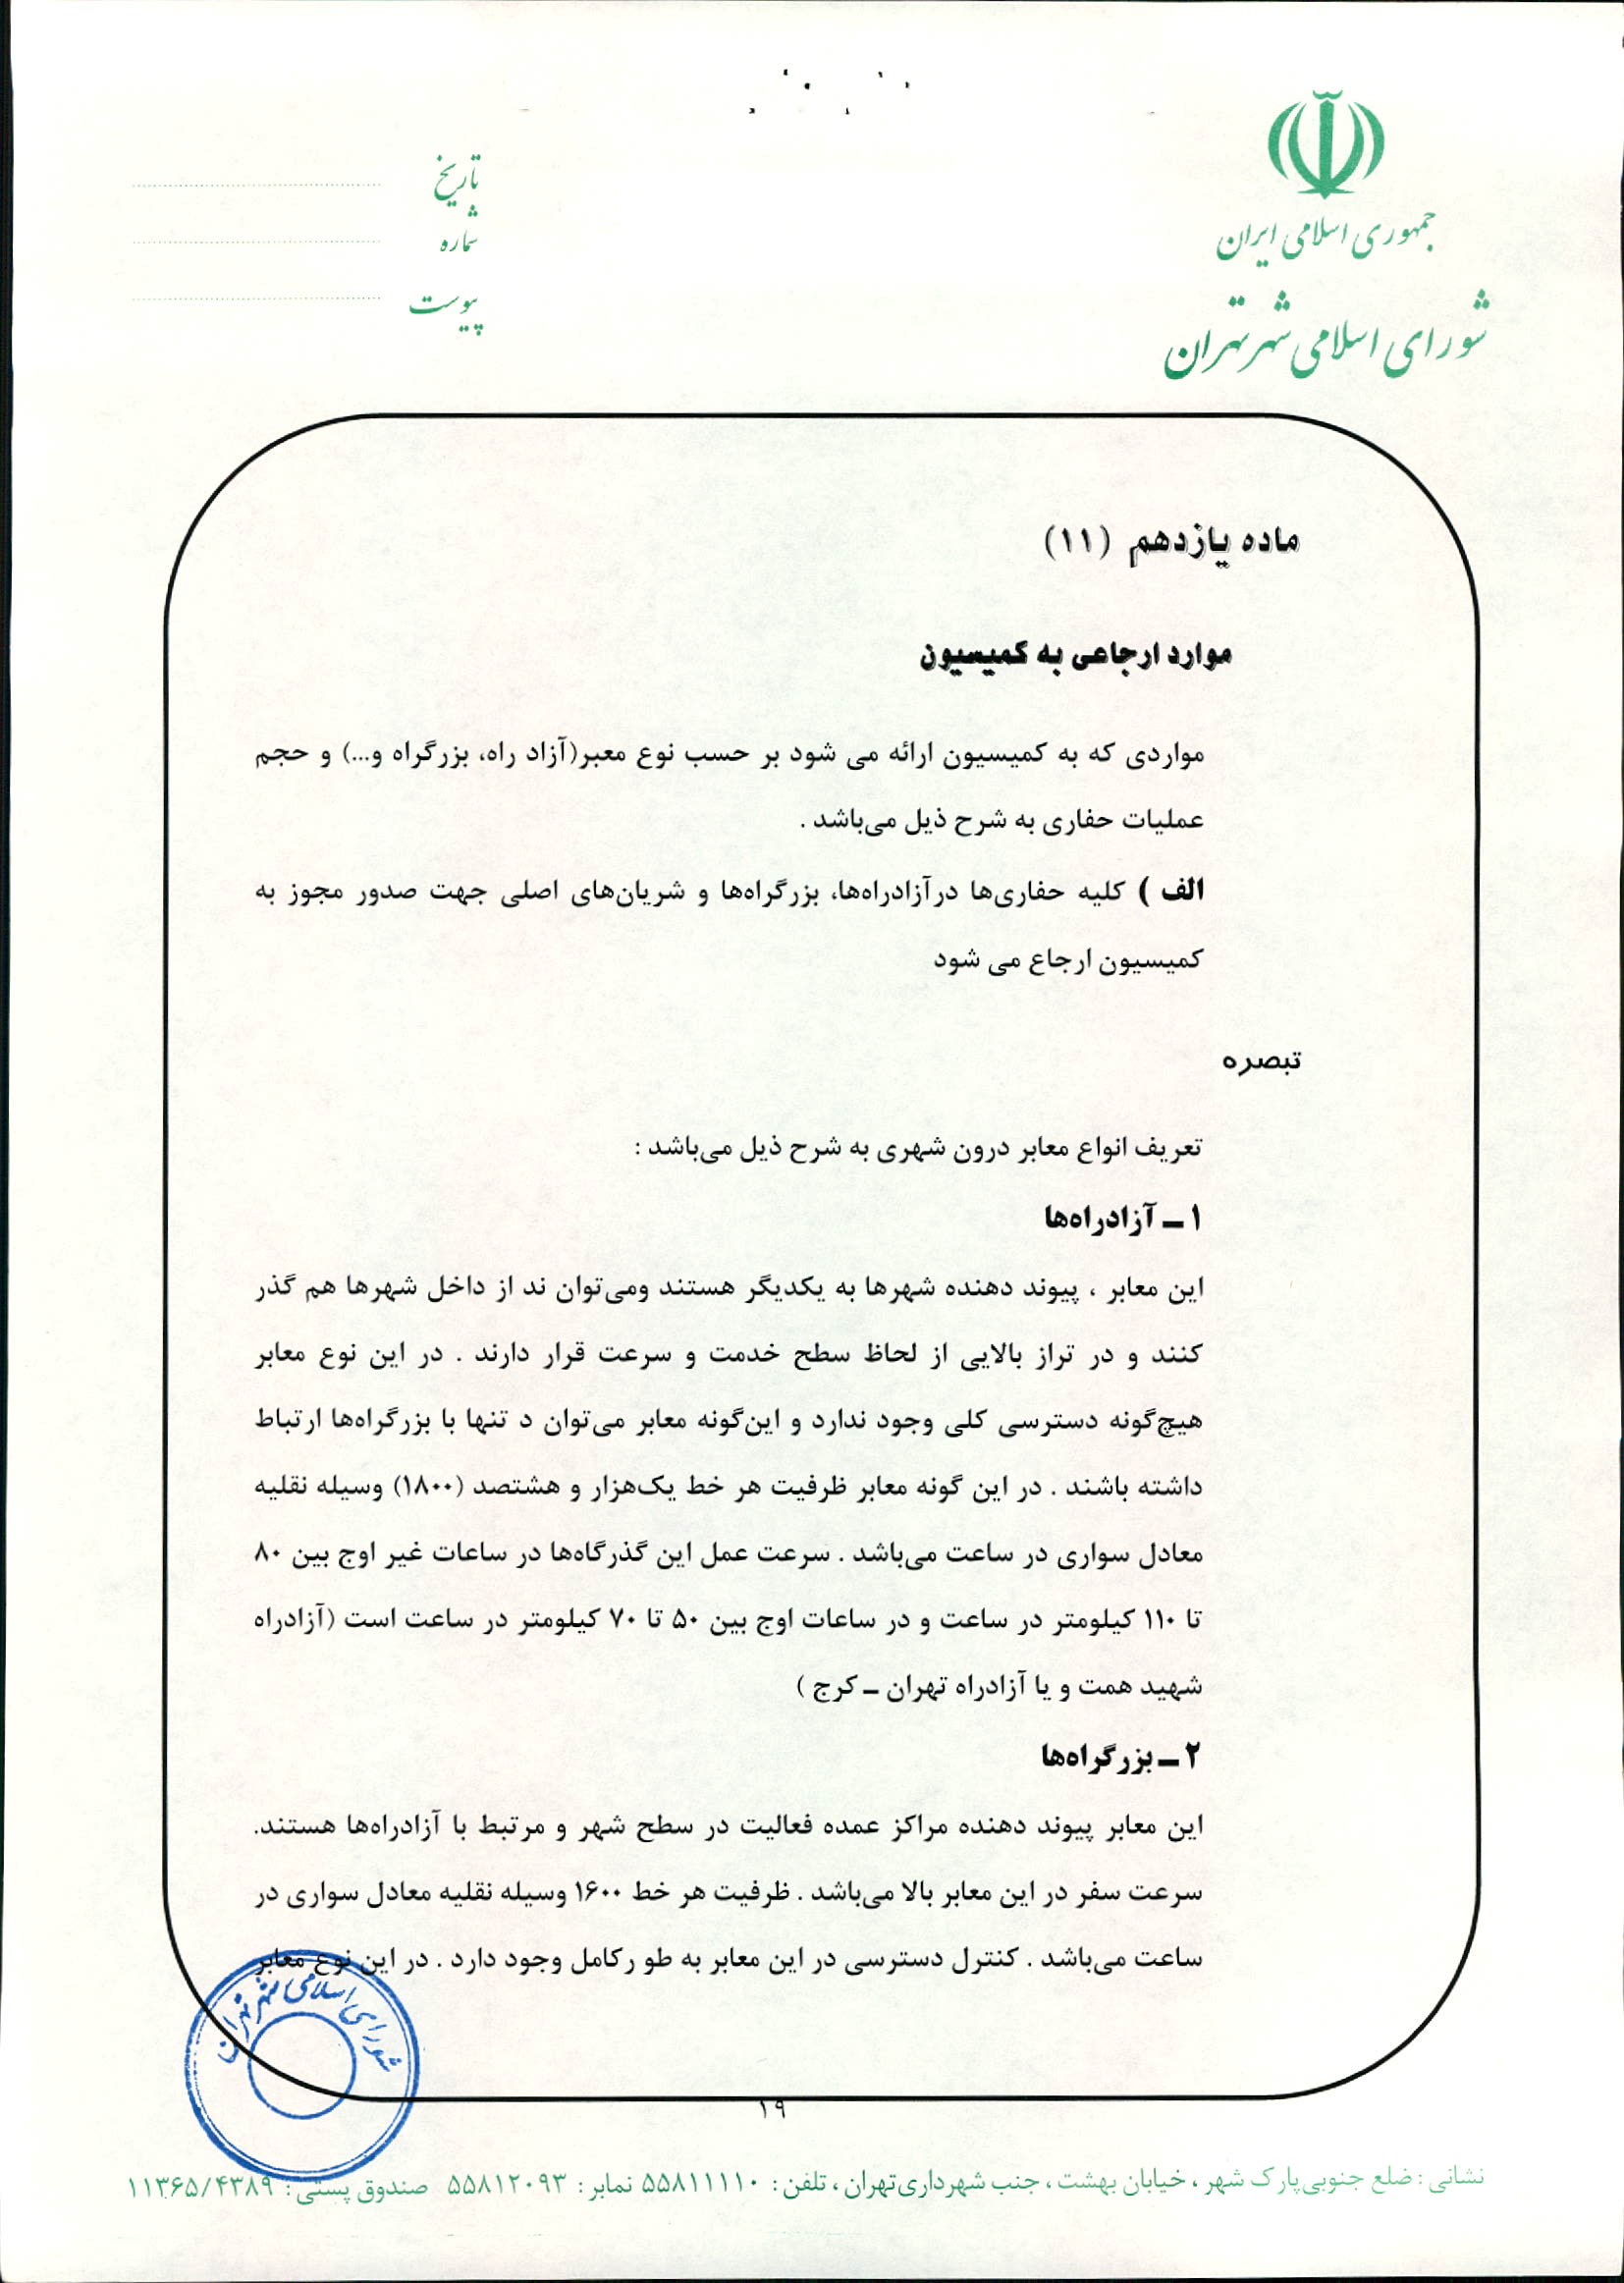 جمهوری اسلامی ایران
شورای اسلامی شهر تهران
تاریخ
شماره
پیوست
ماده یازدهم (۱۱)
موارد ارجاعی به کمیسیون
مواردی که به کمیسیون ارائه می شود بر حسب نوع معبر(آزاد راه، بزرگراه و...) و حجم
عملیات حفاری به شرح ذیل می‌باشد .
الف ) کلیه حفاری‌ها درآزادراه‌ها، بزرگراه‌ها و شریان‌های اصلی جهت صدور مجوز به
کمیسیون ارجاع می شود
تبصره
تعریف انواع معابر درون شهری به شرح ذیل می‌باشد :
۱ ـ آزادراه‌ها
این معابر ، پیوند دهنده شهرها به یکدیگر هستند ومی‌توان ند از داخل شهرها هم گذر
کنند و در تراز بالایی از لحاظ سطح خدمت و سرعت قرار دارند . در این نوع معابر
هیچ‌گونه دسترسی کلی وجود ندارد و این‌گونه معابر می‌توان د تنها با بزرگراه‌ها ارتباط
داشته باشند . در این گونه معابر ظرفیت هر خط یک‌هزار و هشتصد (۱۸۰۰) وسیله نقلیه
معادل سواری در ساعت می‌باشد . سرعت عمل این گذرگاه‌ها در ساعات غیر اوج بین ۸۰
تا ۱۱۰ کیلومتر در ساعت و در ساعات اوج بین ۵۰ تا ۷۰ کیلومتر در ساعت است (آزادراه
شهید همت و یا آزادراه تهران ـ کرج )
۲ ـ بزرگراه‌ها
این معابر پیوند دهنده مراکز عمده فعالیت در سطح شهر و مرتبط با آزادراه‌ها هستند.
سرعت سفر در این معابر بالا می‌باشد . ظرفیت هر خط ۱۶۰۰ وسیله نقلیه معادل سواری در
ساعت می‌باشد . کنترل دسترسی در این معابر به طو رکامل وجود دارد . در این نوع معابر
شورای اسلامی شهر تهران
۱۹
نشانی : ضلع جنوبی پارک شهر ، خیابان بهشت ، جنب شهرداری تهران ، تلفن : ۵۵۸۱۱۱۱۰ نمابر : ۵۵۸۱۲۰۹۳ صندوق پستی : ۱۱۳۶۵/۴۳۸۹